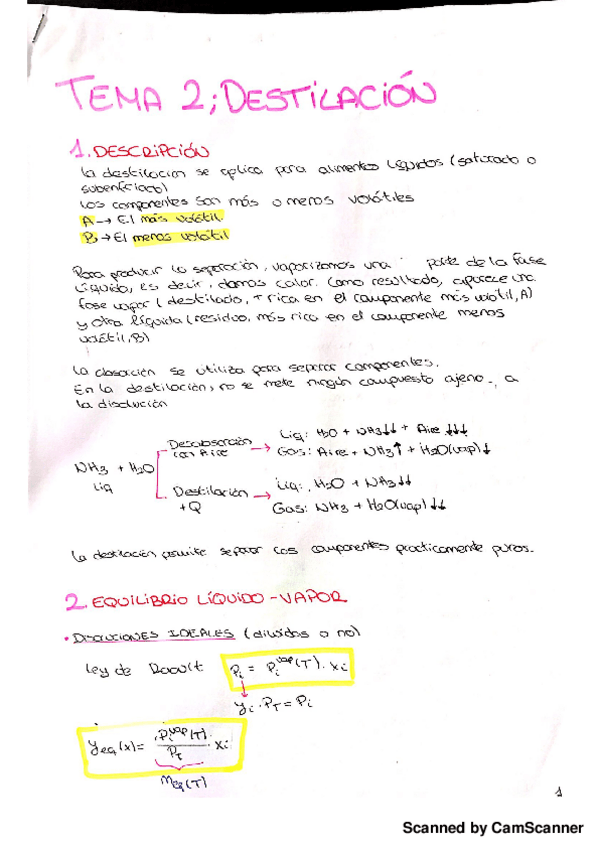 TEMA 2; DESTILACIÓN
1. DESCRIPCIÓN
La destilación se aplica para alimentos líquidos (saturado o
subenfriado)
Los componentes son más o menos volátiles
A → El más volátil.
B → El menos volátil
Para producir la separación, vaporizamos una parte de la fase
líquida, es decir, damos calor. Como resultado, aparece una
fase vapor (destilado, + rica en el componente más volátil, A)
y otra líquida (residuo, más rica en el componente menos
volátil, B)
La se utiliza para separar componentes.
En la destilación, no se mete ningún compuesto ajeno a
la disolución
NH3 + H2O
Liq
Desabsorción
con Aire
→ Liq: H2O + NH3↓↓ + Aire ↓↓↓
Gas: Aire + NH3↑ + H2O(vap)↓
Destilación
+Q
→ Liq: H2O + NH3↓↓
Gas: NH3 + H2O(vap)↓↓
La destilación permite separar los componentes prácticamente puros.
2. EQUILIBRIO LÍQUIDO-VAPOR
• DISOLUCIONES IDEALES (diluidas o no)
Ley de Raoult Pi = Pi^vap(T) · xi
yi · PT = Pi
yeq(x) = Pi^vap(T) / PT · xi
meq(T)
1
Scanned by CamScanner